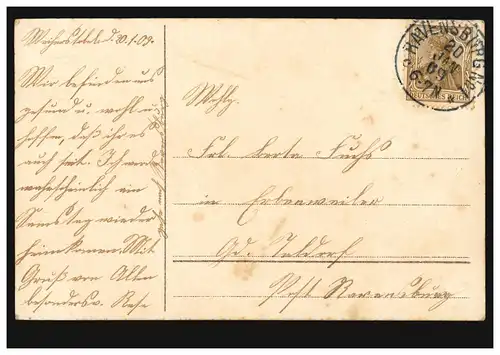 d. 20.1.09.
Wir befinden uns
gesund u. wohl u.
hoffen, daß ihr es
auch seit. Ich werde
wahrscheinlich am
Samstag wieder
heimkommen. Mit
Gruß von Allen
besonders v. Rese
RAVENSBURG
20
JAN
09
DEUTSCHES REICH
Wohlg.
Frl. Berta Fuchs
in Erbenweiler
Gd.
Post Ravensburg